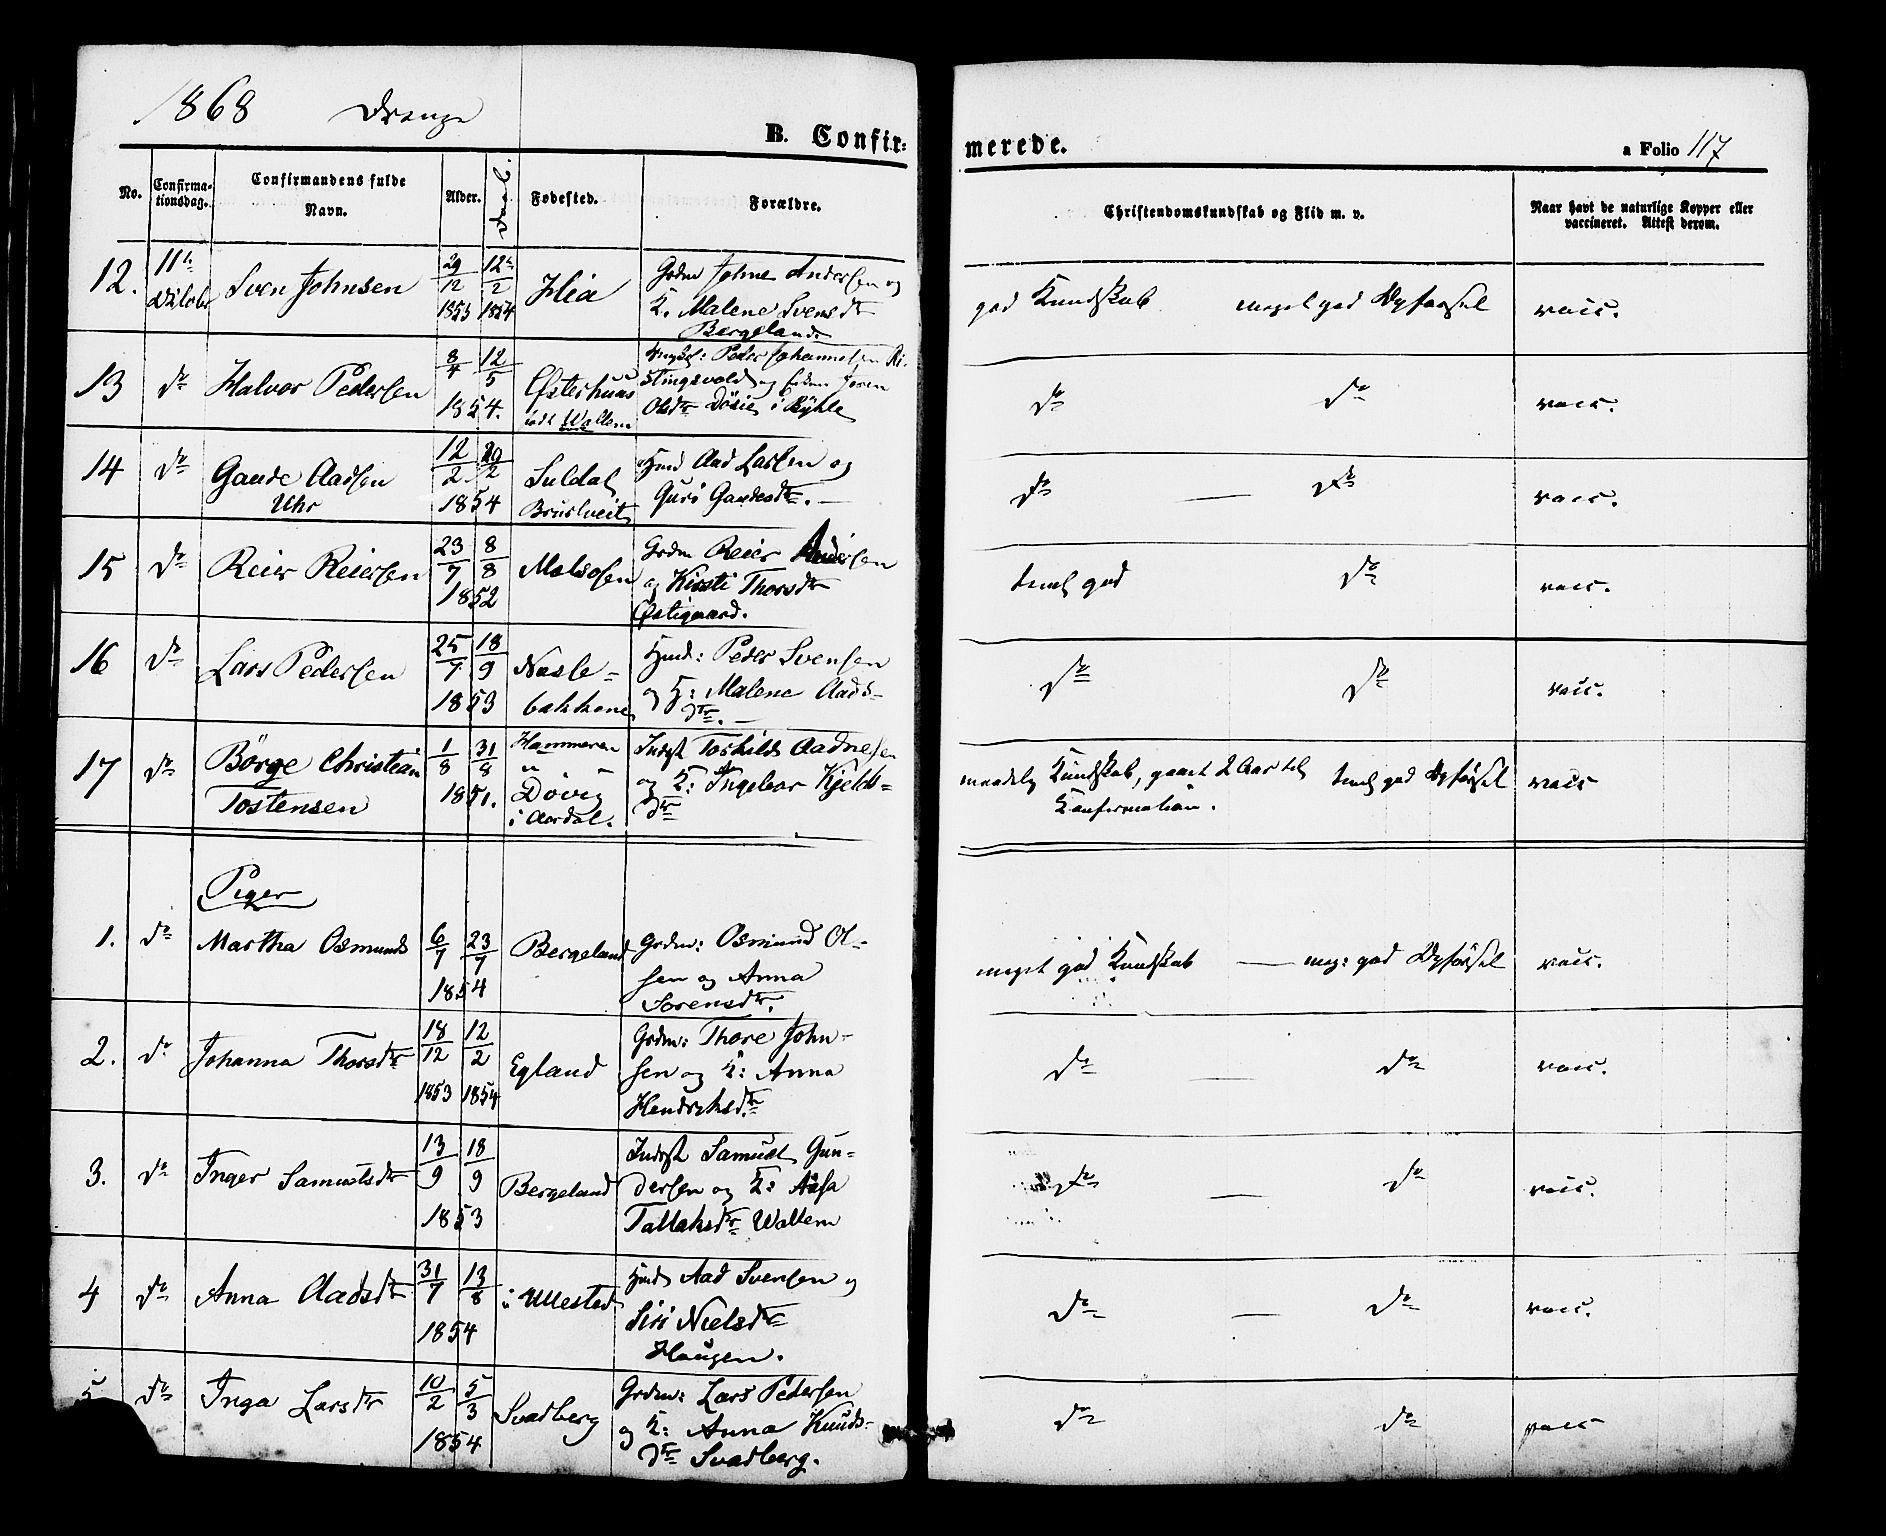 1868 Drenge
B. Confir=
merede.
a Folio 117
No.
Confirma=
tionsdag.
Confirmandens fulde
Navn.
Alder.
Daab.
Fødested.
Forældre.
Christendomskundskab og Flid m. v.
Naar havt de naturlige Kopper eller
vaccineret. Attest derom.
12. 11te Sven Johnsen 29/12 1853 12te/2 1854 Hia
Grdm Johne Andersen og
K. Malene Svensdtr
Bergeland.
god Kundskab meget god Opførsel vacc.
13 do Halvor Pedersen 8/4 12/5 1854. Østerhuus
født Wallem
Peder Johannesen Ri=
stingsvold og
Olsdtr i
do do vacc.
14 do Gaude Aadsen
Uhr
12/2 20/2 1854 Suldal
Aad Larsen og
Guri Gaudesdtr. —
do — do vacc.
15 do Reier Reiersen 23/7 8/8 1852
Grdm Reier Andersen
og Kirsti Thorsdtr
Østigaard.
temel god do vacc.
16 do Lars Pedersen 25/7 18/9 1853 Nasle=
bakkene
Hmd: Peder Svensen
og K: Malene Aads=
dtr. —
do do vacc.
17 do Børge Christian
Tostensen
1/8 31/8 1851. Hammeren
Døvig
i Aardal.
Indst Torkild Aadnesen
og K: Ingebor Kjelds=
dtr
maadelig Kundskab, gaaet 2 Aar til
Konfirmation.
temel god Opførsel vacc
Piger
1. do Martha Osmunds 6/7 23/7 1854 Bergeland
Grdm: Osmund Ol=
sen og Anna
Sørensdtr.
meget god Kundskab — meg: god Opførsel vacc.
2. do Johanna Thorsdtr 18/12 1853 12/2 1854 Egland
Grdm: Thore John=
sen og K: Anna
Hendriksdtr
do — do vacc.
3. do Inger Samuelsdtr 13/9 18/9 1853 Bergeland
Inderst Samuel Gun=
dersen og K: Aasa
Tallaksdtr Wallem
do — do vacc.
4 do Anna Aadsdtr 31/7 13/8 1854 i Ullestad
Hmd Aad Svensen og
Siri Nielsdtr
Haugen.
do — do vacc.
5 do Inga Larsdtr 10/2 5/3 1854 Svadberg
Grdm: Lars Pedersen
og K: Anna Knuds=
dtr Svadberg.
do do vacc